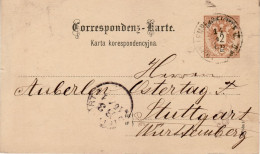 Correspondenz-Karte.
Karta korespondencyjna.
Herren
Auberlen Ostertag
Stuttgart
Württemberg